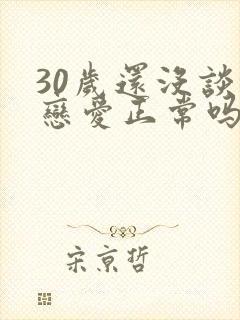 30歲還沒談
戀愛正常吗
宋京哲